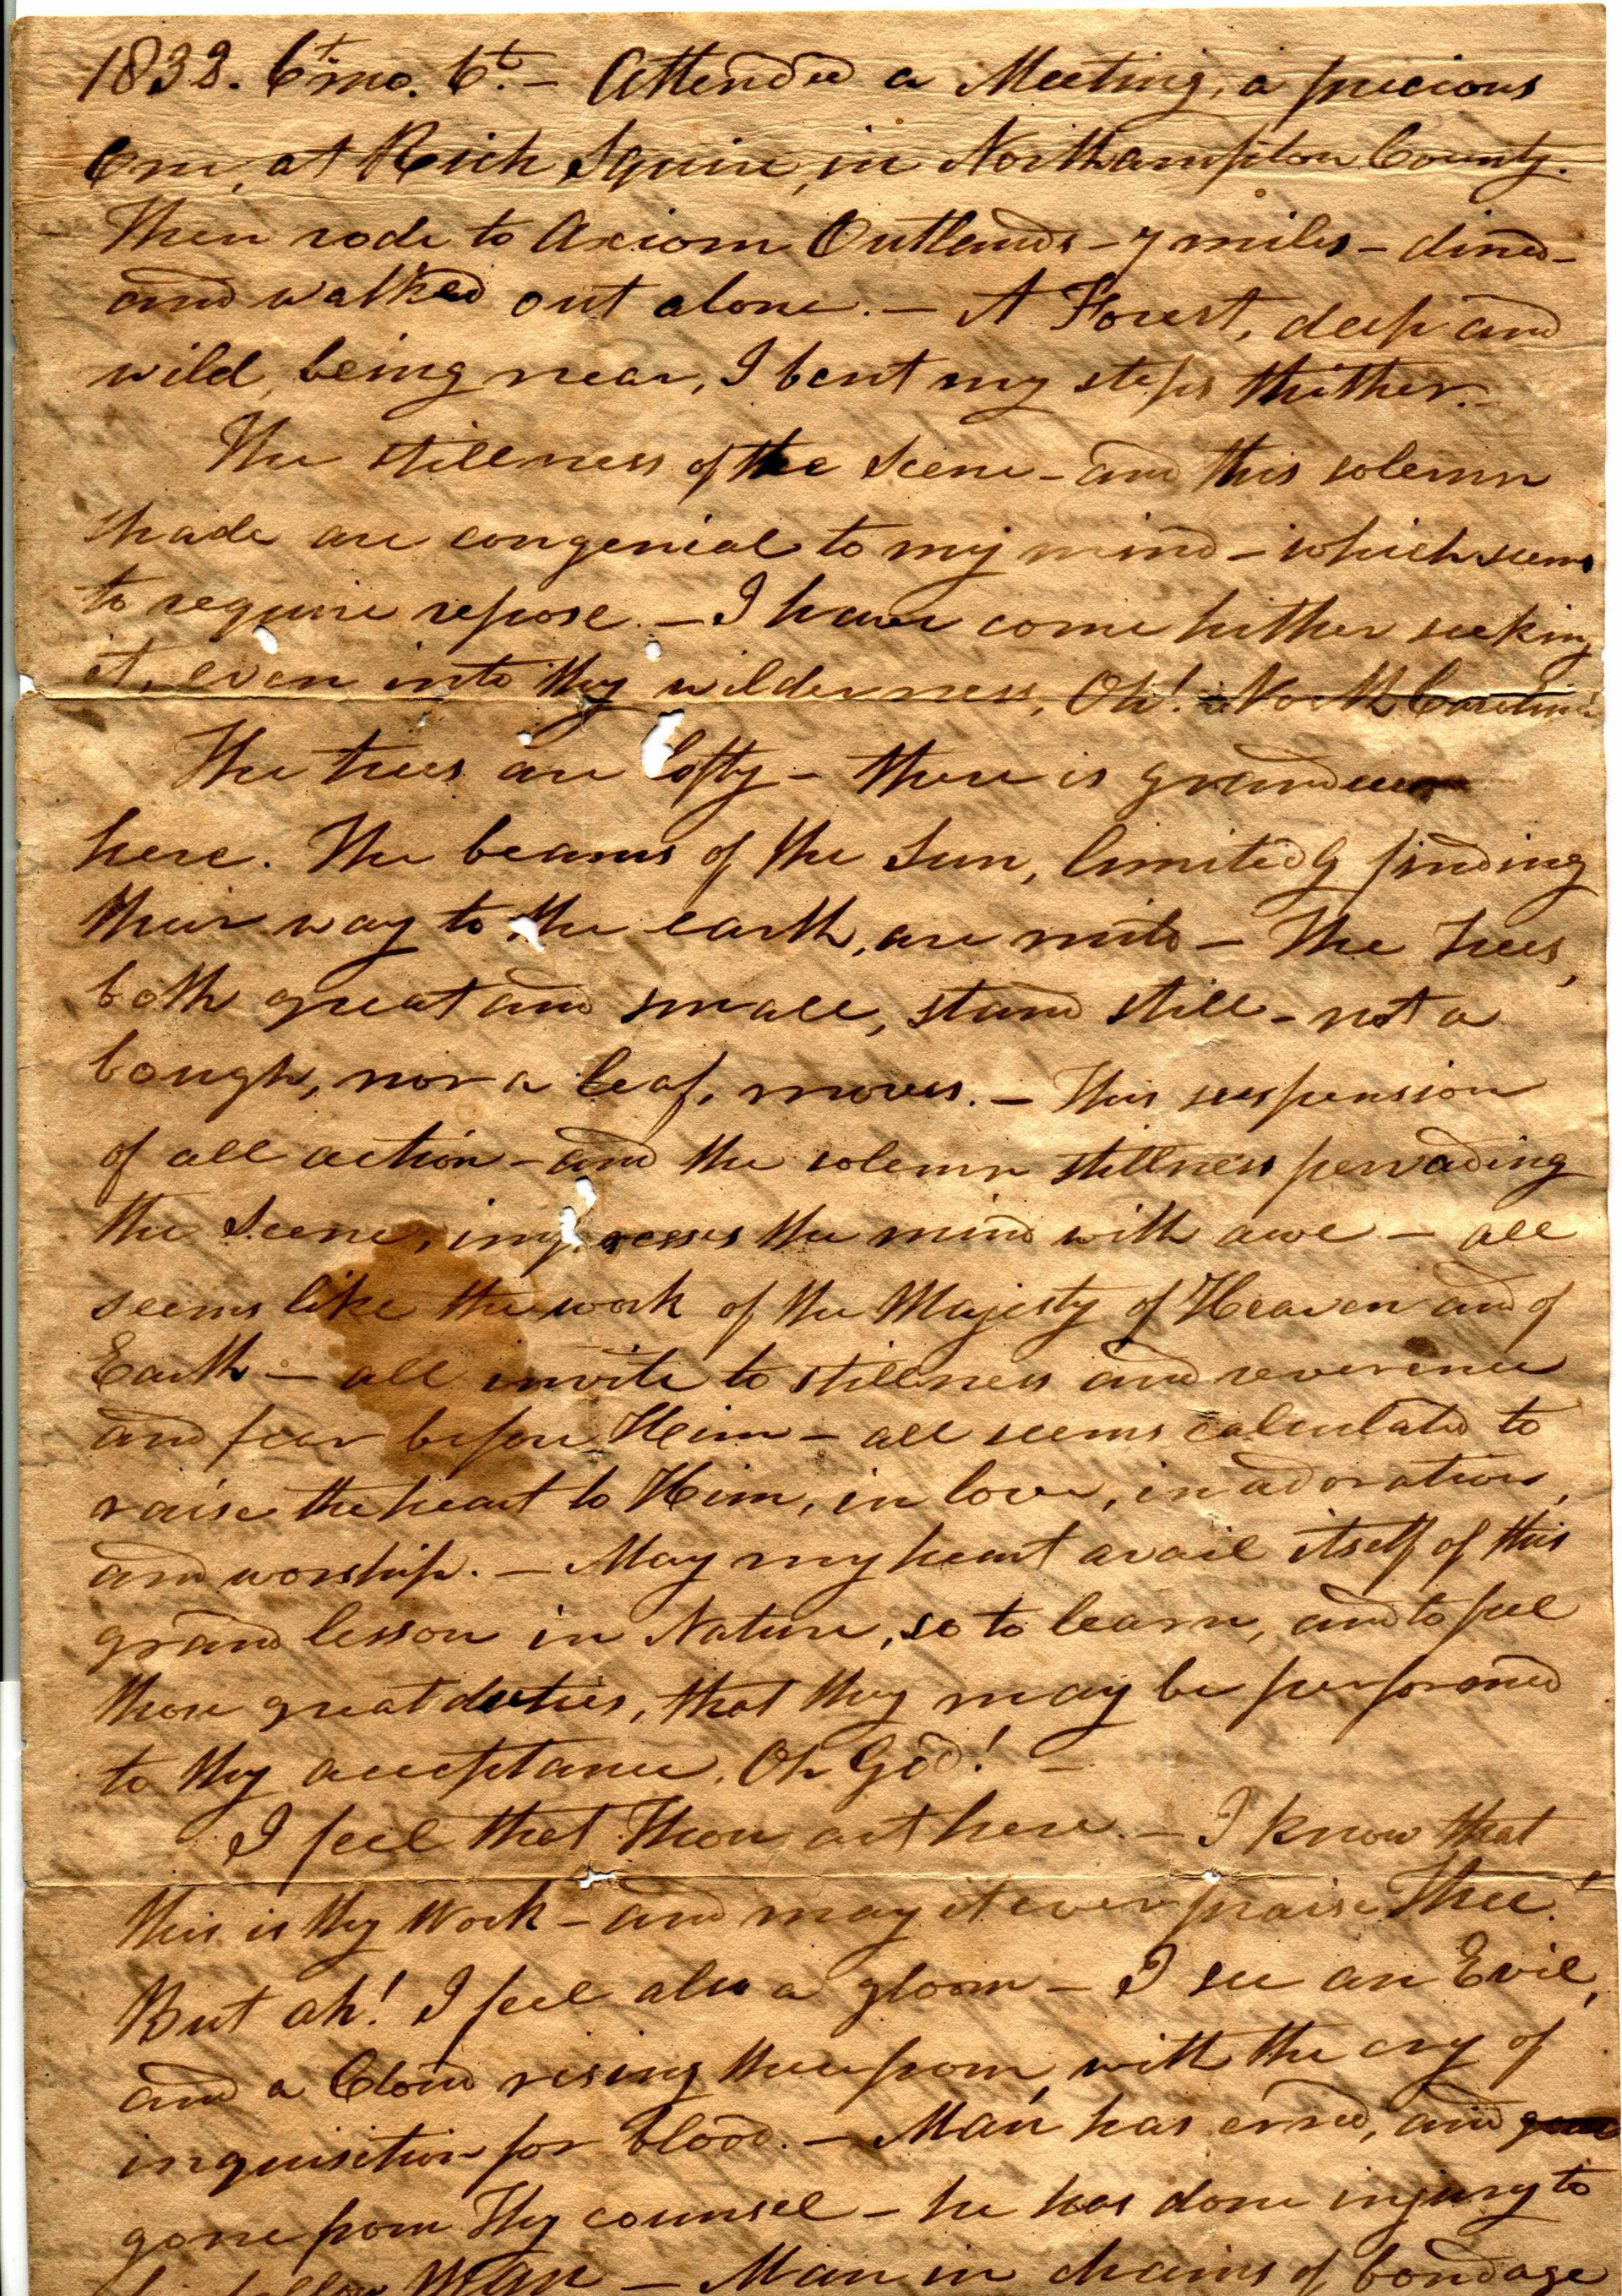 1832. 6th mo. 6th. – Attended a Meeting, a precious
One, at Rich Squire, in Northampton County.
Then rode to Axiom Outlands – 7 miles – dined –
and walked out alone. – A Forest, deep and
wild, being near, I bent my steps thither. –
The stillness of the Scene – and this solemn
shade are congenial to my mind – which seems
to require repose. – I have come hither seeking
it, even into thy wilderness, Oh! North Carolina!
The trees are lofty – there is grandeur
here. The beams of the Sun, limitedly finding
their way to the earth, are mild – The Trees,
both great and small, stand still – not a
bough, nor a leaf, moves. – This suspension
of all action – and the solemn stillness pervading
the Scene, impresses the mind with awe – all
seems like the work of the Majesty of Heaven and of
Earth – all invite to stillness and reverence
and fear before Him – all seems calculated to
raise the heart to Him, in love, in adoration,
and worship. – May my heart avail itself of this
grand lesson in Nature, so to learn, and to feel
those great duties, that they may be performed
to thy acceptance, Oh God! –
I feel that Thou art here. – I know that
this is thy Work – and may it ever praise Thee!
But ah! I feel also a gloom – I see an Evil,
and a Cloud rising therefrom, with the cry of
inquisition for blood. – Man has erred, and
gone from Thy counsel – he has done injury to
his fellow Man – Man in chains of bondage